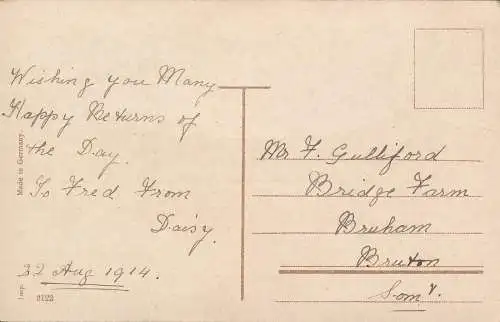 Wishing you Many
Happy Returns of
the Day.
To Fred From
Daisy.
22 Aug 1914.
Made in Germany.
Imp.
0123
Mr F. Gulliford
Bridge Farm
Bruham
Bruton
Som r.